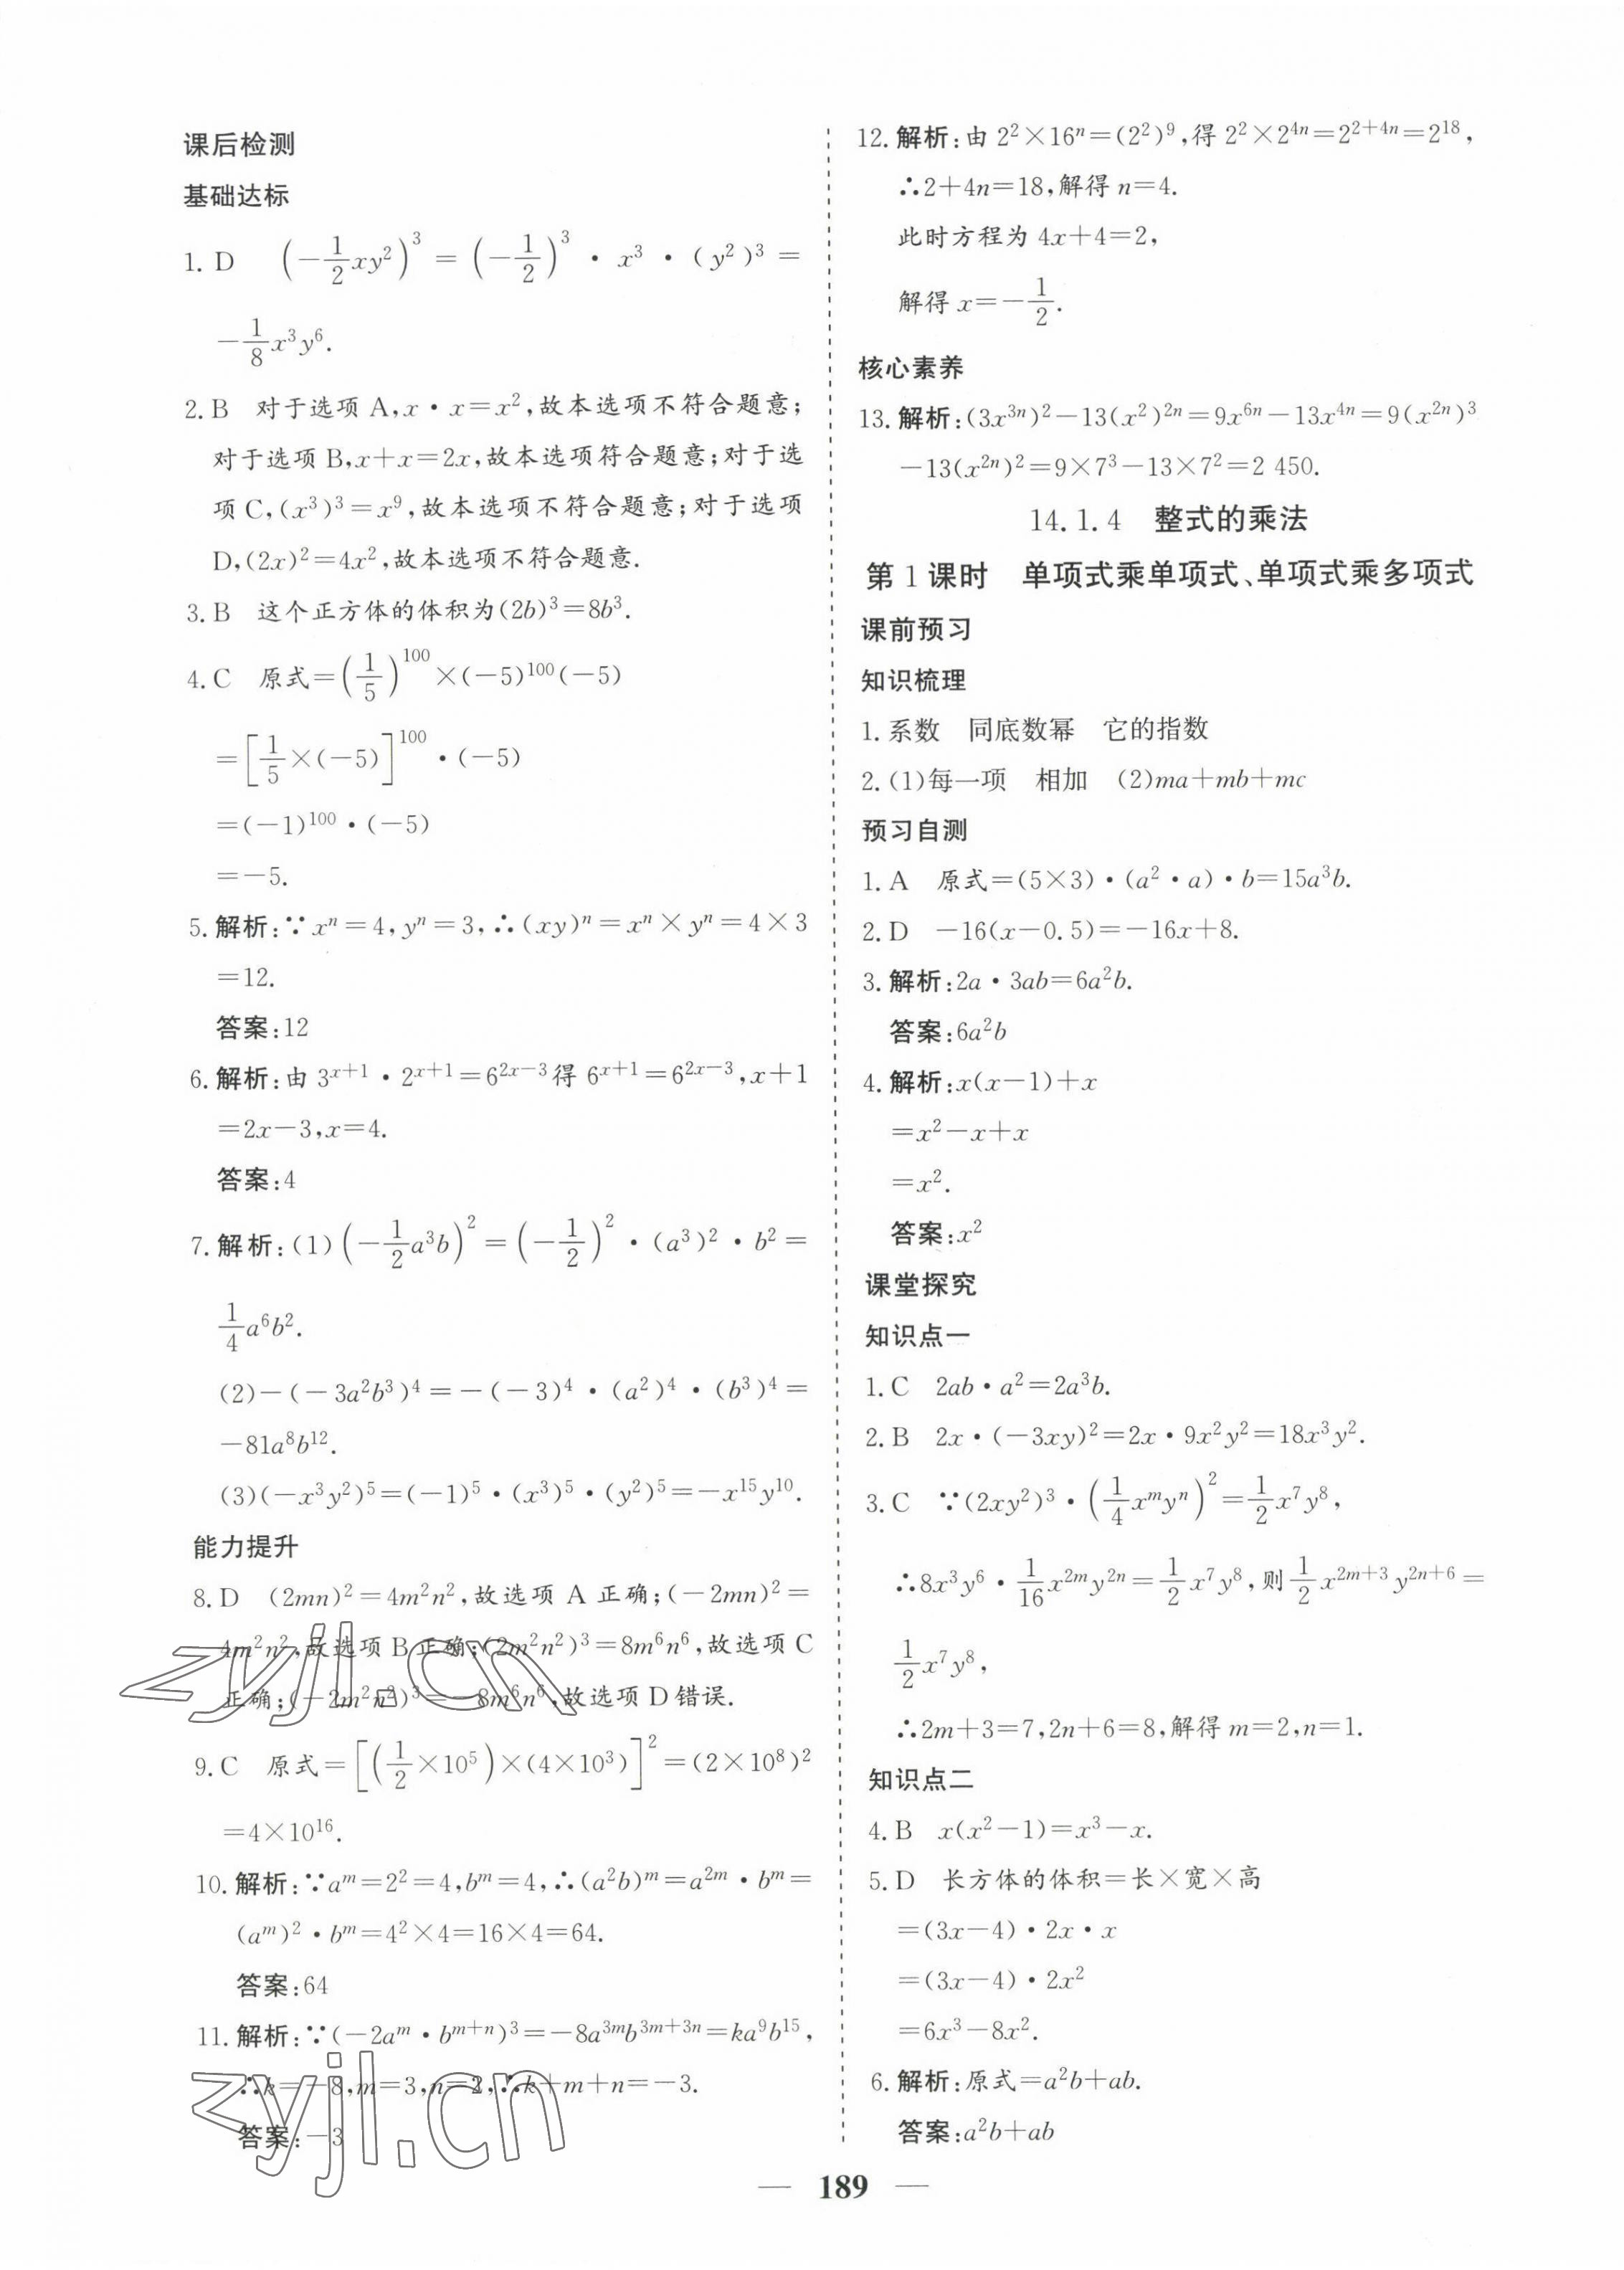 课后检测
基础达标
1. D (−1/2xy²)³ = (−1/2)³ · x³ · (y²)³ =
−1/8x³y⁶.
2. B 对于选项 A,x·x=x²,故本选项不符合题意;
对于选项 B,x+x=2x,故本选项符合题意;对于选
项 C,(x³)³=x⁹,故本选项不符合题意;对于选项
D,(2x)²=4x²,故本选项不符合题意.
3. B 这个正方体的体积为(2b)³=8b³.
4. C 原式=(1/5)¹⁰⁰×(−5)¹⁰⁰(−5)
=[1/5×(−5)]¹⁰⁰·(−5)
=(−1)¹⁰⁰·(−5)
=−5.
5. 解析:∵xⁿ=4,yⁿ=3,∴(xy)ⁿ=xⁿ×yⁿ=4×3
=12.
答案:12
6. 解析:由 3ˣ⁺¹·2ˣ⁺¹=6²ˣ⁻³得 6ˣ⁺¹=6²ˣ⁻³,x+1
=2x−3,x=4.
答案:4
7. 解析:(1)(−1/2a³b)²=(−1/2)²·(a³)²·b²=
1/4a⁶b².
(2)−(−3a²b³)⁴=−(−3)⁴·(a²)⁴·(b³)⁴=
−81a⁸b¹².
(3)(−x³y²)⁵=(−1)⁵·(x³)⁵·(y²)⁵=−x¹⁵y¹⁰.
能力提升
8. D (2mn)²=4m²n²,故选项 A 正确;(−2mn)²=
4m²n²,故选项 B 正确;(2m²n²)³=8m⁶n⁶,故选项 C
正确;(−2m²n²)³=−8m⁶n⁶,故选项 D 错误.
9. C 原式=[(1/2×10⁵)×(4×10³)]²=(2×10⁸)²
=4×10¹⁶.
10. 解析:∵aᵐ=2²=4,bᵐ=4,∴(a²b)ᵐ=a²ᵐ·bᵐ=
(aᵐ)²·bᵐ=4²×4=16×4=64.
答案:64
11. 解析:∵(−2aᵐ·bᵐ⁺ⁿ)³=−8a³ᵐb³ᵐ⁺³ⁿ=ka⁹b¹⁵,
∴k=−8,m=3,n=2,∴k+m+n=−3.
答案:−3
12. 解析:由 2²×16ⁿ=(2²)⁹,得 2²×2⁴ⁿ=2²⁺⁴ⁿ=2¹⁸,
∴2+4n=18,解得 n=4.
此时方程为 4x+4=2,
解得 x=−1/2.
核心素养
13. 解析:(3x³ⁿ)²−13(x²)²ⁿ=9x⁶ⁿ−13x⁴ⁿ=9(x²ⁿ)³
−13(x²ⁿ)²=9×7³−13×7²=2 450.
14.1.4 整式的乘法
第 1 课时 单项式乘单项式、单项式乘多项式
课前预习
知识梳理
1. 系数 同底数幂 它的指数
2. (1)每一项 相加 (2)ma+mb+mc
预习自测
1. A 原式=(5×3)·(a²·a)·b=15a³b.
2. D −16(x−0.5)=−16x+8.
3. 解析:2a·3ab=6a²b.
答案:6a²b
4. 解析:x(x−1)+x
=x²−x+x
=x².
答案:x²
课堂探究
知识点一
1. C 2ab·a²=2a³b.
2. B 2x·(−3xy)²=2x·9x²y²=18x³y².
3. C ∵(2xy²)³·(1/4xᵐyⁿ)²=1/2x⁷y⁸,
∴8x³y⁶·1/16x²ᵐy²ⁿ=1/2x⁷y⁸,则1/2x²ᵐ⁺³y²ⁿ⁺⁶=
1/2x⁷y⁸,
∴2m+3=7,2n+6=8,解得 m=2,n=1.
知识点二
4. B x(x²−1)=x³−x.
5. D 长方体的体积=长×宽×高
=(3x−4)·2x·x
=(3x−4)·2x²
=6x³−8x².
6. 解析:原式=a²b+ab.
答案:a²b+ab
— 189 —
zyjl.cn
zyjl.cn